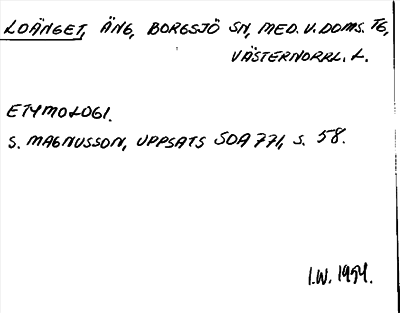 LOÄNGET, ÄNG, BORGSJÖ SN, MED. V. DOMS. TG,
VÄSTERNORRL. L.
ETYMOLOGI.
S. MAGNUSSON, UPPSATS SOA 771, S. 58.
I.W. 1994.